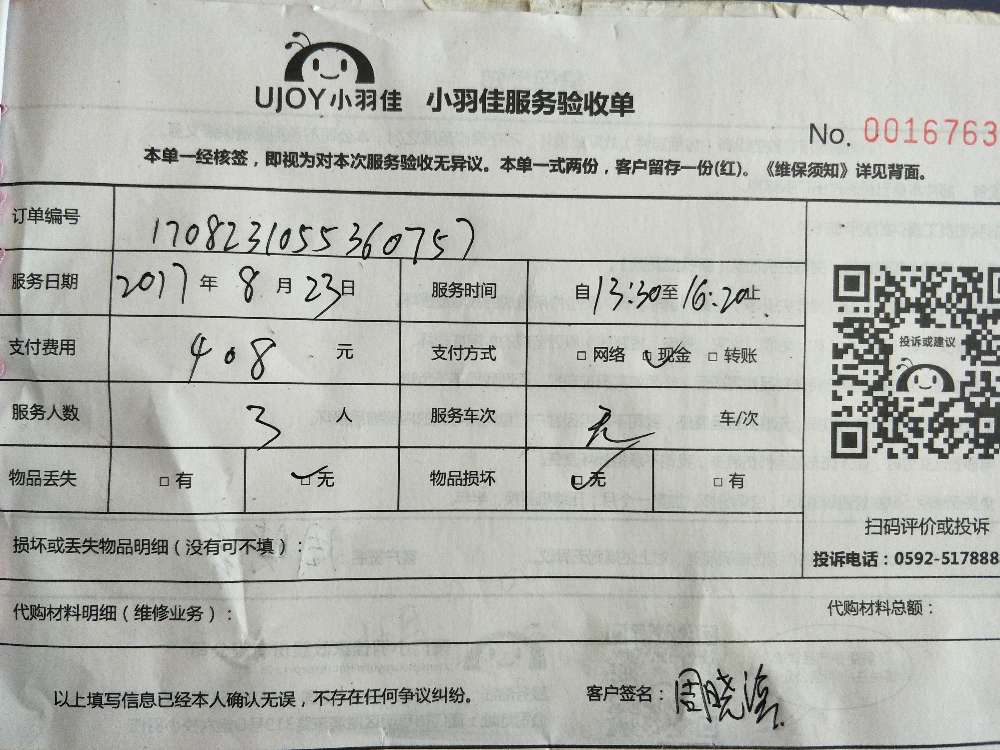 UJOY小羽佳 小羽佳服务验收单
No. 0016763
本单一经核签，即视为对本次服务验收无异议。本单一式两份，客户留存一份(红)。《维保须知》详见背面。
订单编号 1708231055360757
服务日期 2017年8月23日 服务时间 自13:30至16:20止
支付费用 408元 支付方式 □网络 ☑现金 □转账
投诉或建议
服务人数 3人 服务车次 无 车/次
物品丢失 □有 ☑无 物品损坏 ☑无 □有
扫码评价或投诉
损坏或丢失物品明细（没有可不填）：
投诉电话：0592-517888
代购材料明细（维修业务）： 代购材料总额：
以上填写信息已经本人确认无误，不存在任何争议纠纷。 客户签名：周晓